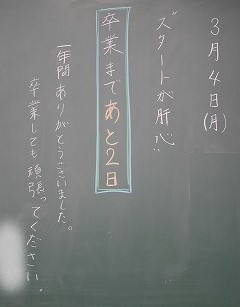 3月4日(月)
"スタートが肝心"
卒業まであと2日
一年間ありがとうございました。
卒業しても頑張ってください。